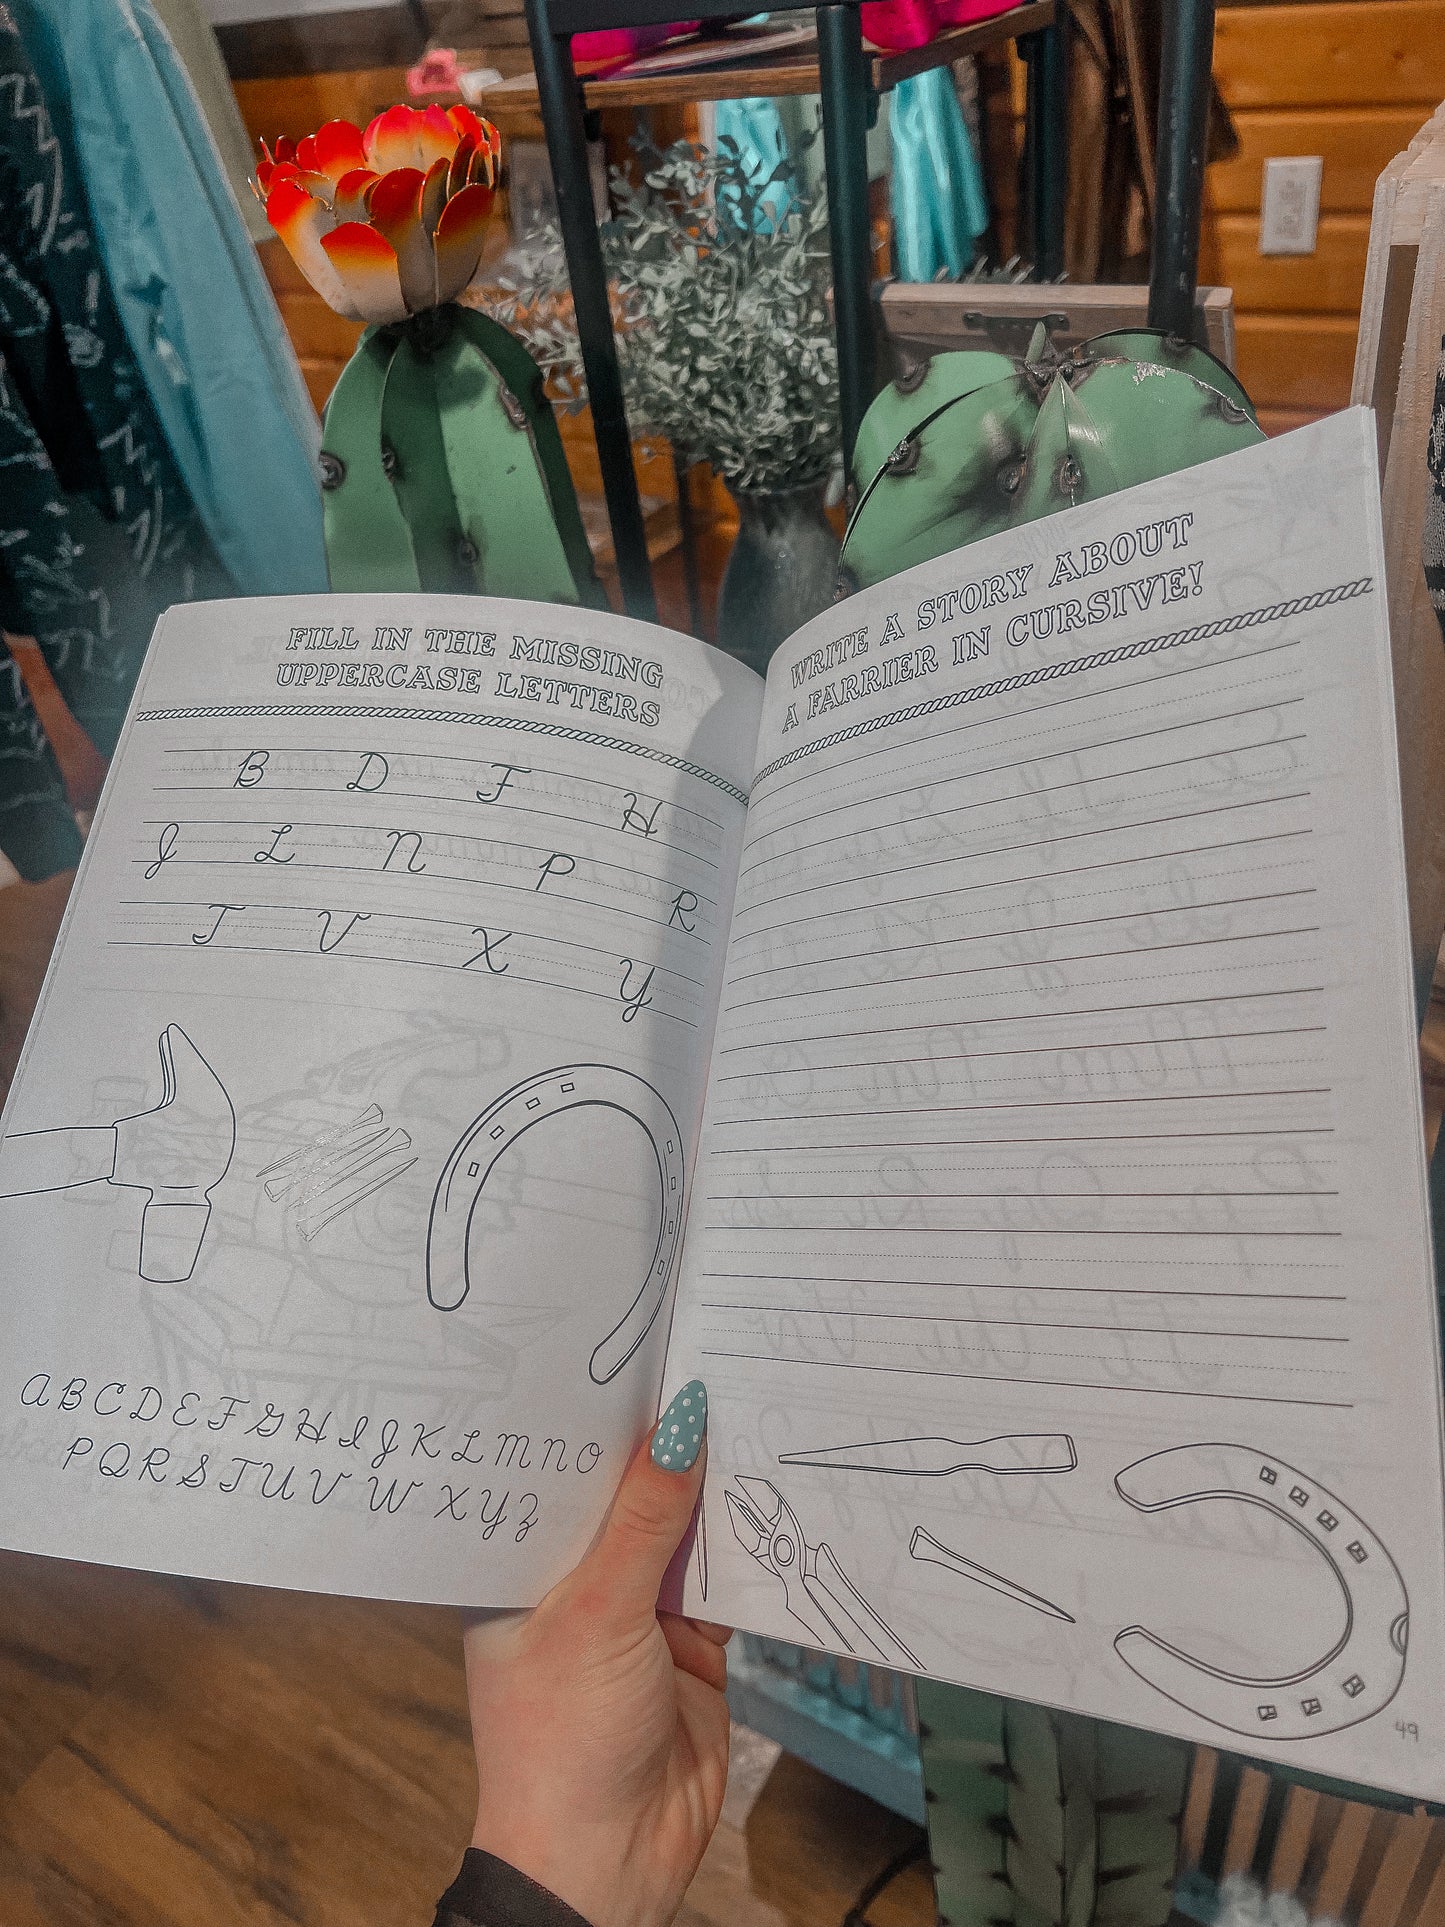 FILL IN THE MISSING
UPPERCASE LETTERS
B D F H
J L N P R
T V X Y
ABCDEFGHIJKLMNO
PQRSTUVWXYZ
WRITE A STORY ABOUT
A FARRIER IN CURSIVE!
49